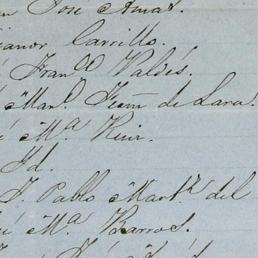 n José Amat.
Carrillo.
Fran.co Valdés.
Man.l de Lara.
é M.a Ruiz.
Id.
J. Pablo Mart.z del
é M.a Barros.